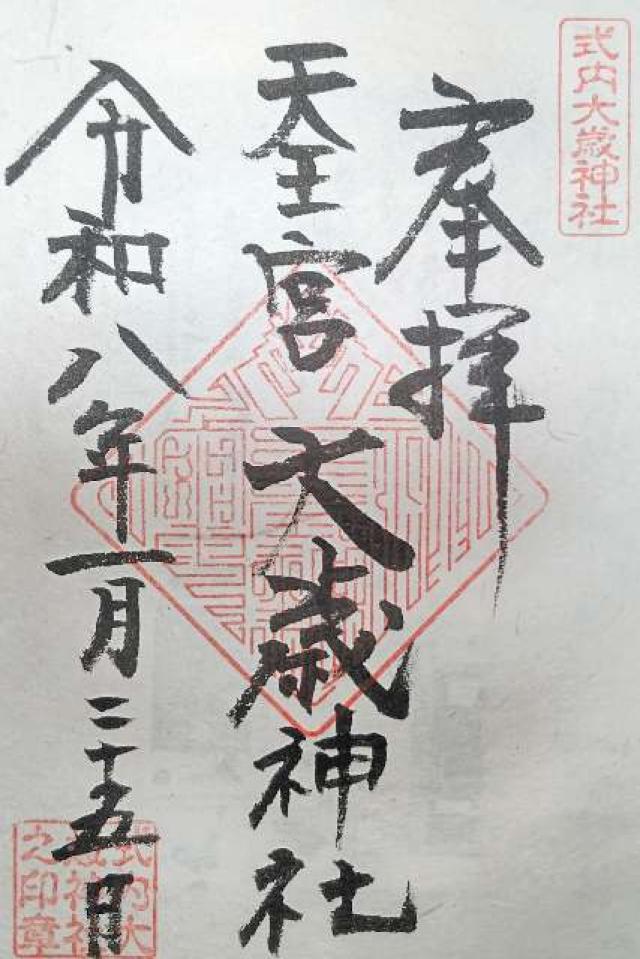 式内大歳神社
奉拝
天王宮大歳神社
令和八年一月二十五日
式内大
歳神社
之印章